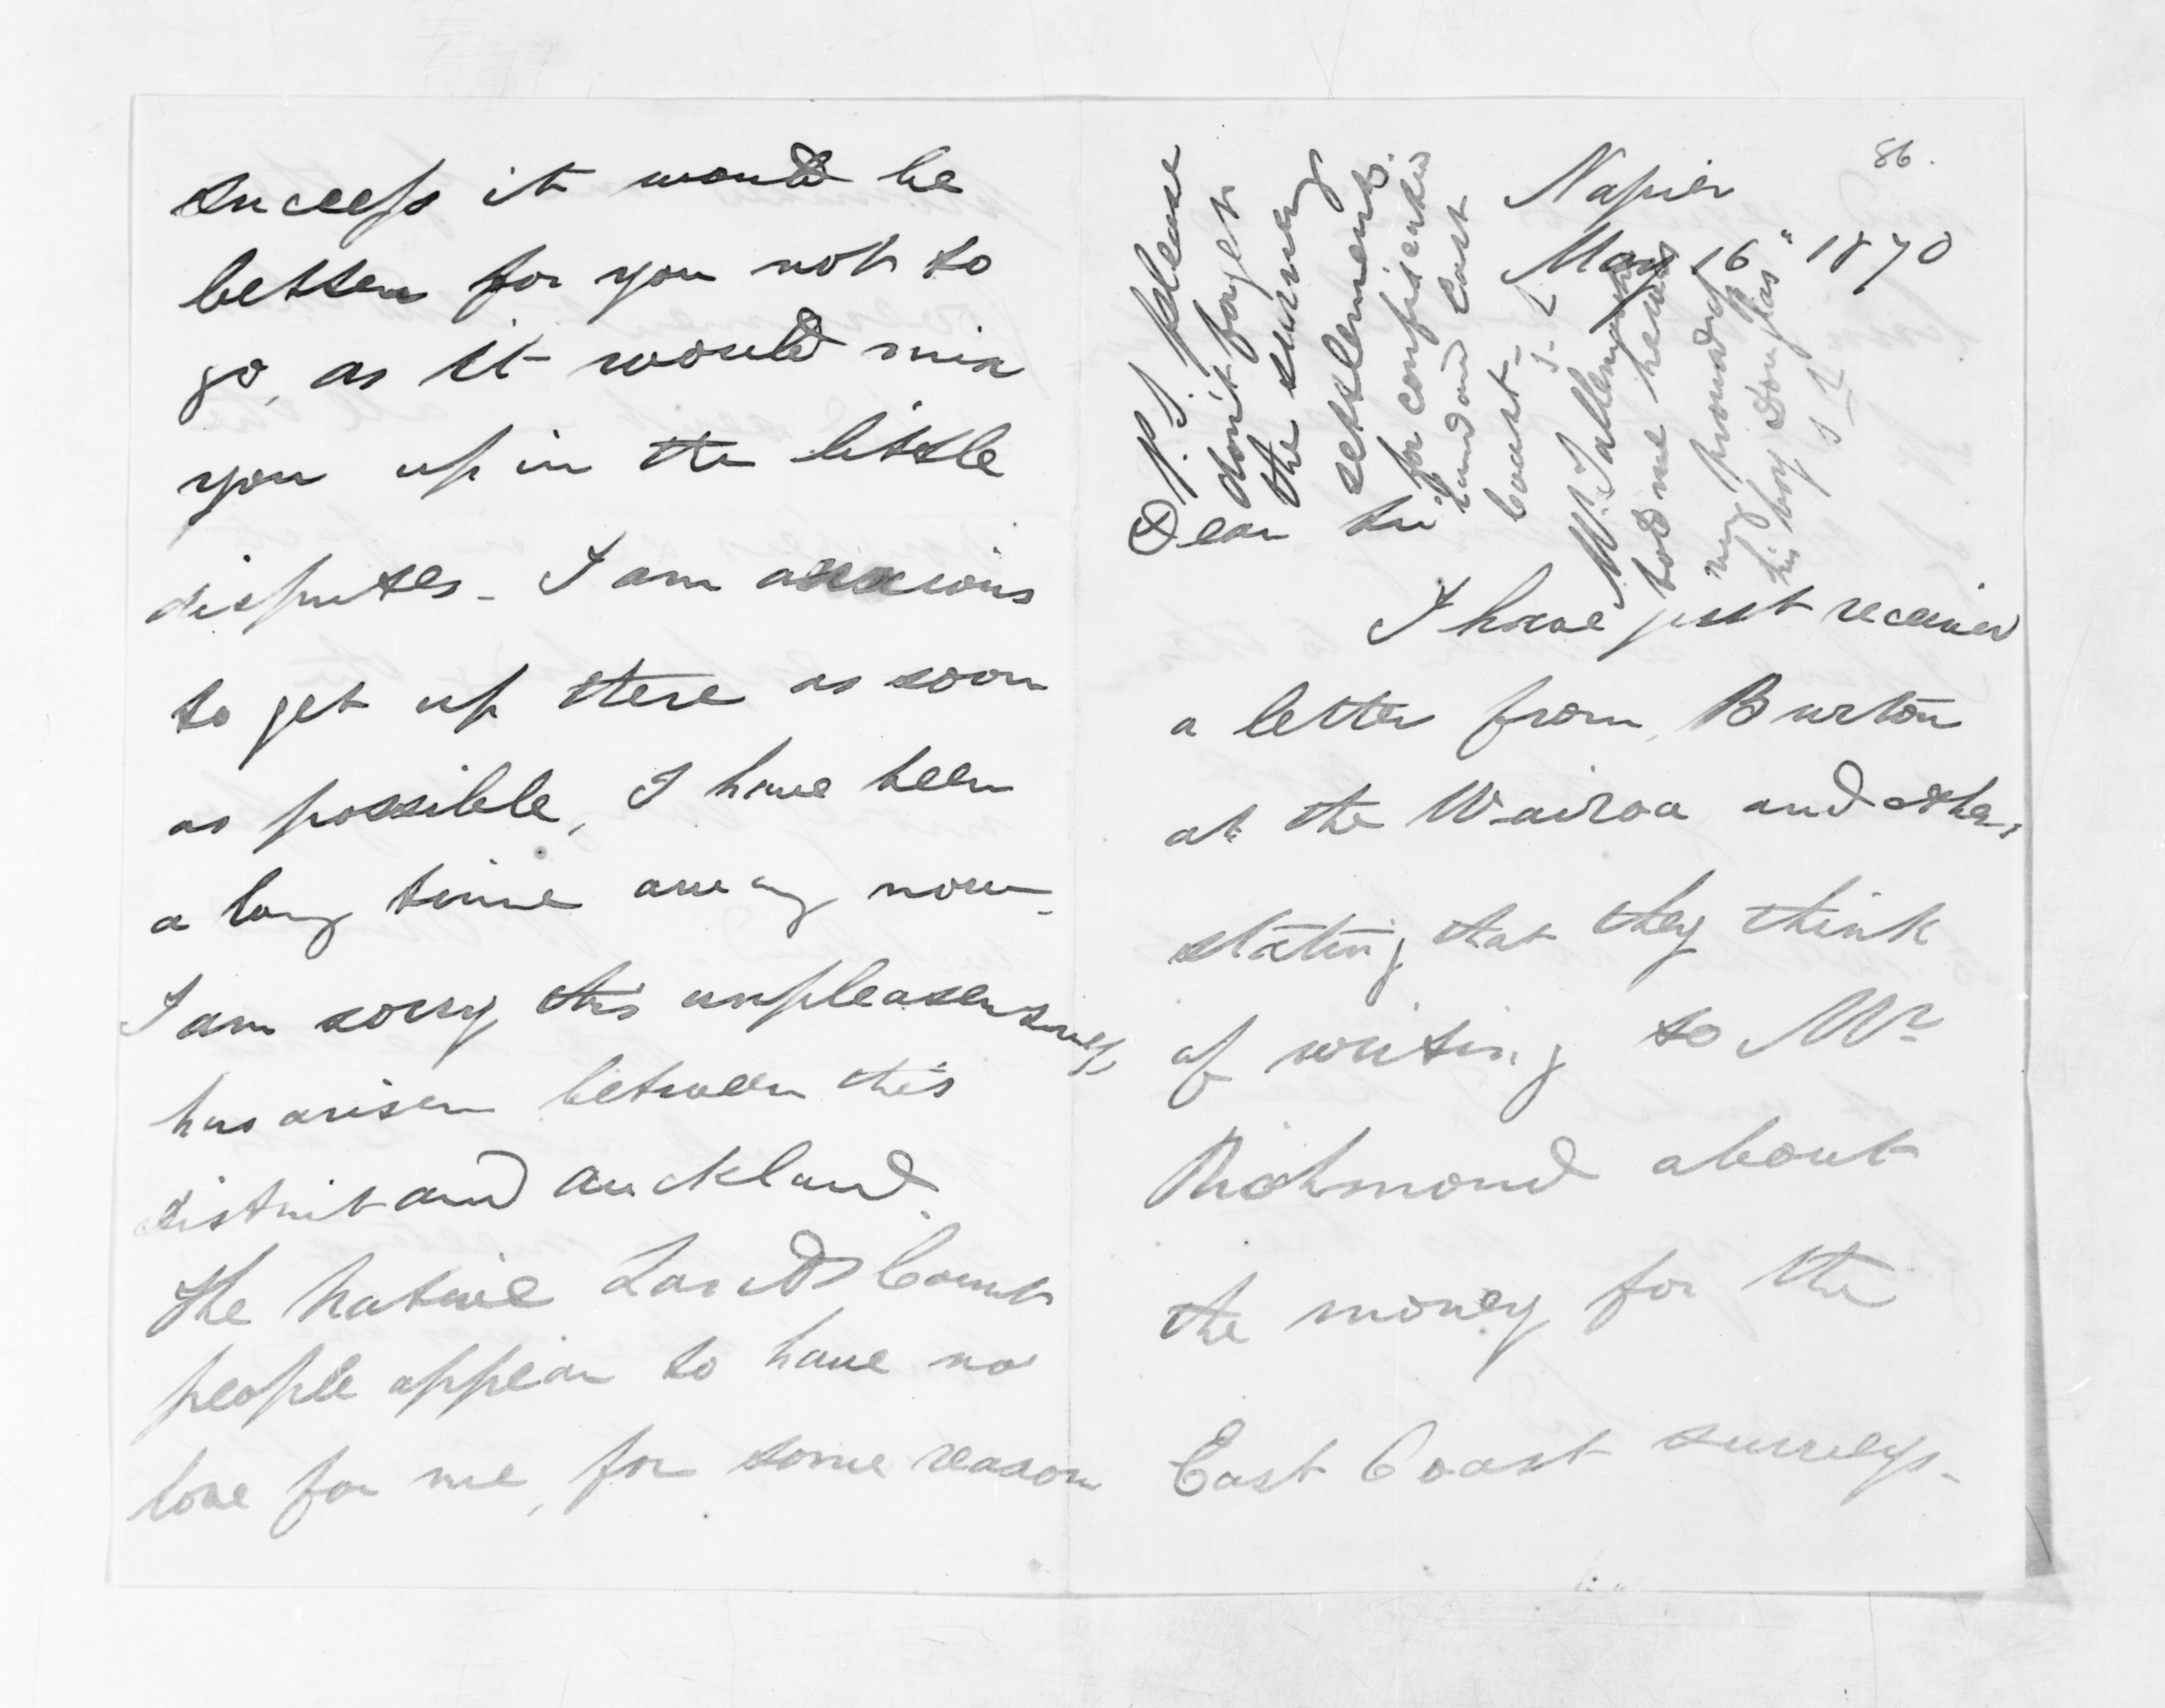 success it would be
better for you not to
go, as it would mix
you up in the little
disputes - I am anxious
to get up there as soon
as possible, I have been
a long time away now -
I am sorry this unpleasentness
has arisen between this
district and Auckland.
The Native Lands Court
people appear to have no
love for me, for some reason
86.
Napier
May 16" 1870
P.S. please
don't forget
the survey
settlements.
for confiscated
land East
Coast -
S. L
Mr
told me he was
promised
his boy Douglas
S L
Dear Sir
I have just received
a letter from, Burton
at the Wairoa and others
stating that they think
of writing to Mr
Richmond about
the money for the
East Coast surveys -